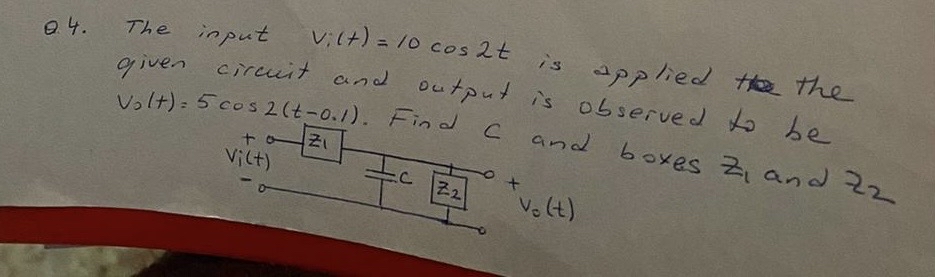 Q4. The input Vi(t) = 10 cos 2t is applied to the
given circuit and output is observed to be
Vo(t) = 5 cos 2(t-0.1). Find C and boxes Z1 and Z2
+ Z1
Vi(t)
-
C Z2
+
Vo(t)